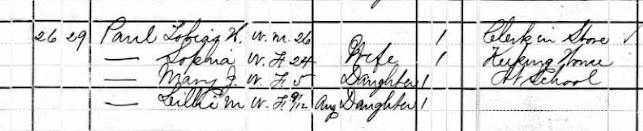 26 29 Paul Tobias K. W. M. 26 1 Clerk in Store
— Sophia W. F 24 Wife 1 Keeping House
— Mary J. W. F 5 Daughter 1 At School
— Lillie M W. F 9/12 Aug Daughter 1